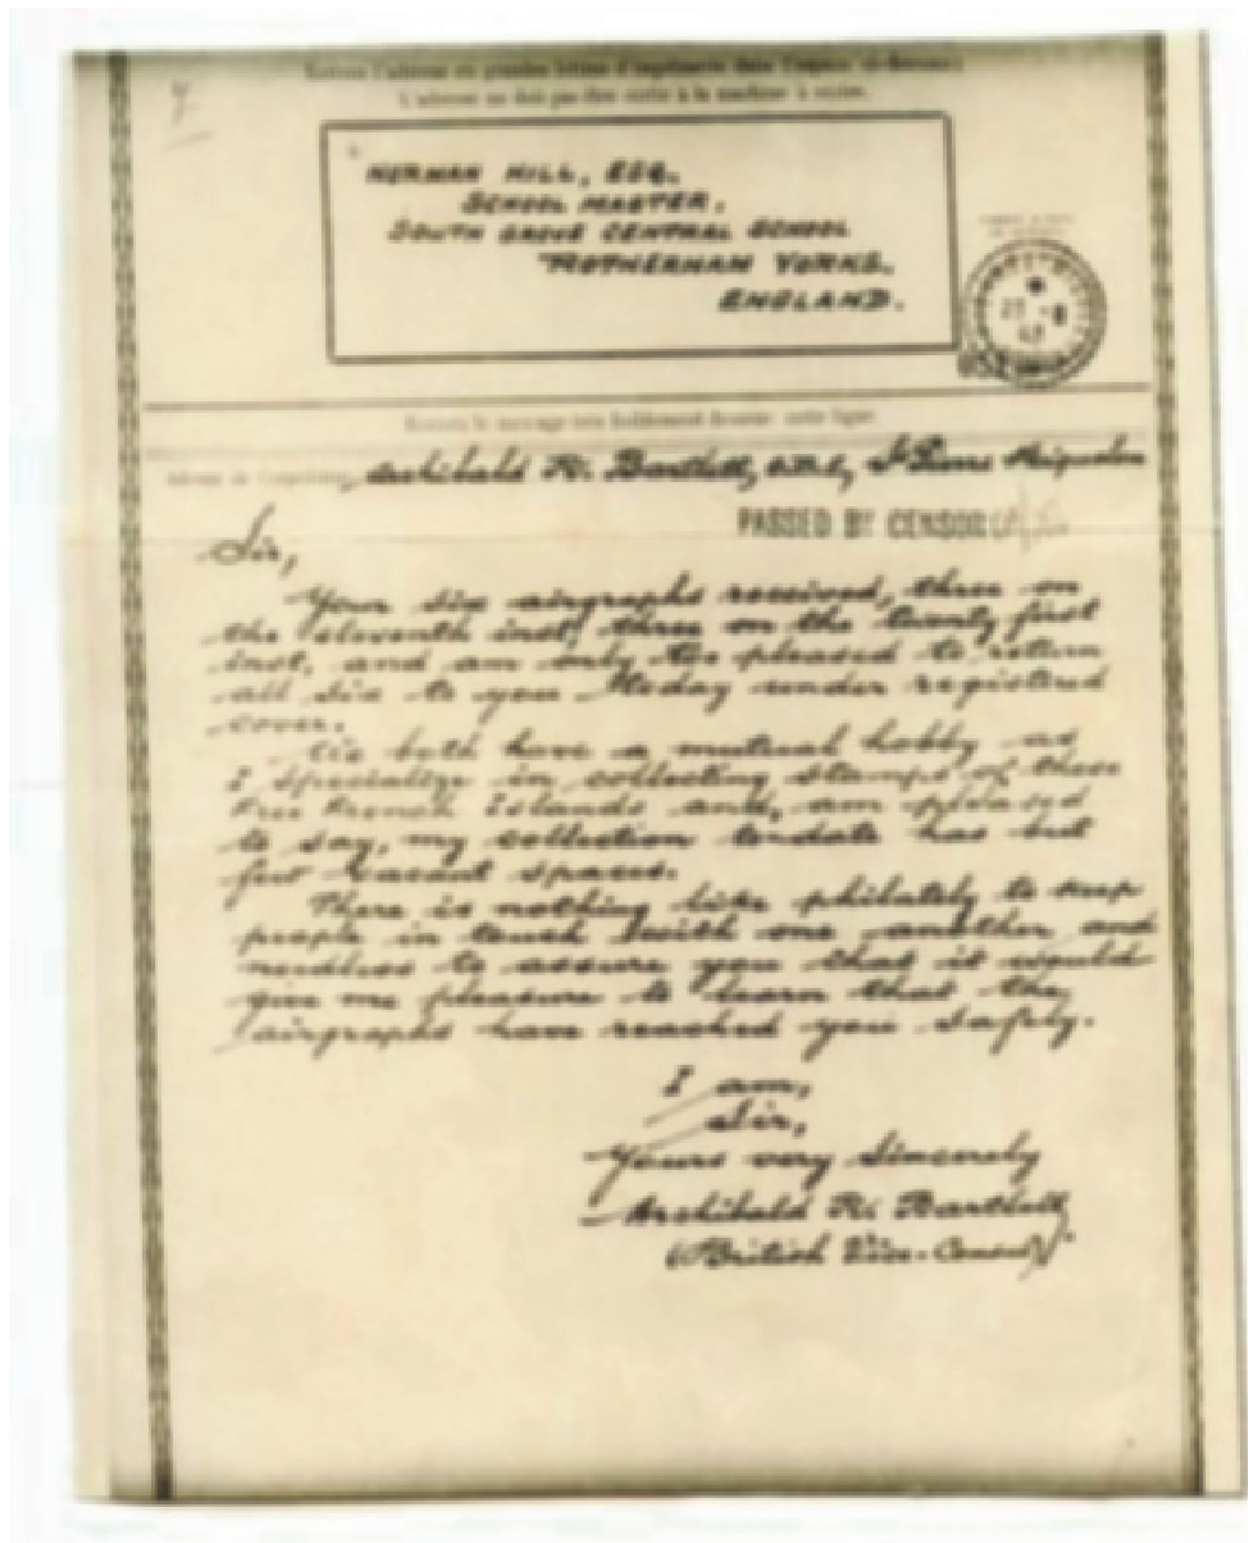 Ecrivez l'adresse en grandes lettres d'imprimerie dans l'espace ci-dessous
L'adresse ne doit pas être écrite à la machine à écrire.
NORMAN HILL, ESQ.
SCHOOL MASTER.
SOUTH GROVE CENTRAL SCHOOL
ROTHERHAM YORKS.
ENGLAND.
le message très lisiblement dessous cette ligne.
Adresse de l'expéditeur Archibald R. Bartlett, St Pierre Miquelon
PASSED BY CENSOR
Sir,
Your six airgraphs received, three on
the eleventh inst, three on the twenty first
inst. and am only too pleased to return
all six to you today under registered
cover.
We both have a mutual hobby as
I specialize in collecting stamps of these
Free French Islands and, am pleased
to say, my collection to-date has but
few vacant spaces.
There is nothing like philately to keep
people in touch with one another and
needless to assure you that it would
give me pleasure to learn that the
airgraphs have reached you safely.
I am,
Sir,
Yours very sincerely
Archibald R. Bartlett
(British Vice-Consul).